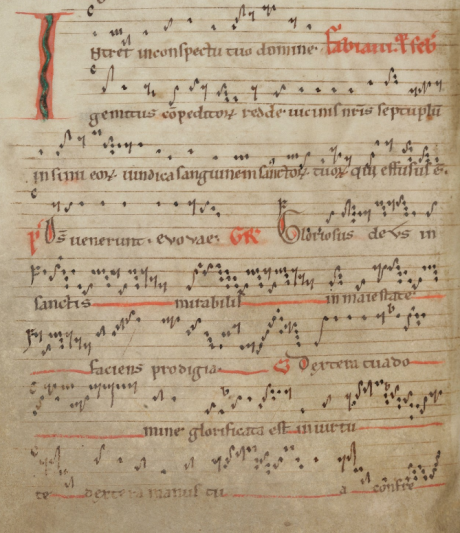 Intret in conspectu tuo domine. Fabiani ⁊ seb
gemitus cōpeditoꝝ redde uicinis nr̄is septuplū
in sinu eoꝝ uindica sanguinem sanctoꝝ tuoꝝ qui effusus ē.
p̄ Ds̄ uenerunt. evovae. GR Gloriosus deVs in
sanctis mirabilis in maiestate
faciens prodigia Dextera tua do
mine glorificata est in uirtu
te dextera manus tu a confre